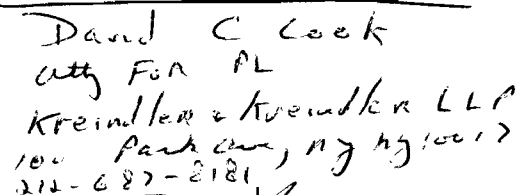 David C Cook
Atty FOR PL
Kreindler & Kreindler LLP
100 Park Ave, NY NY 10017
212-687-8181